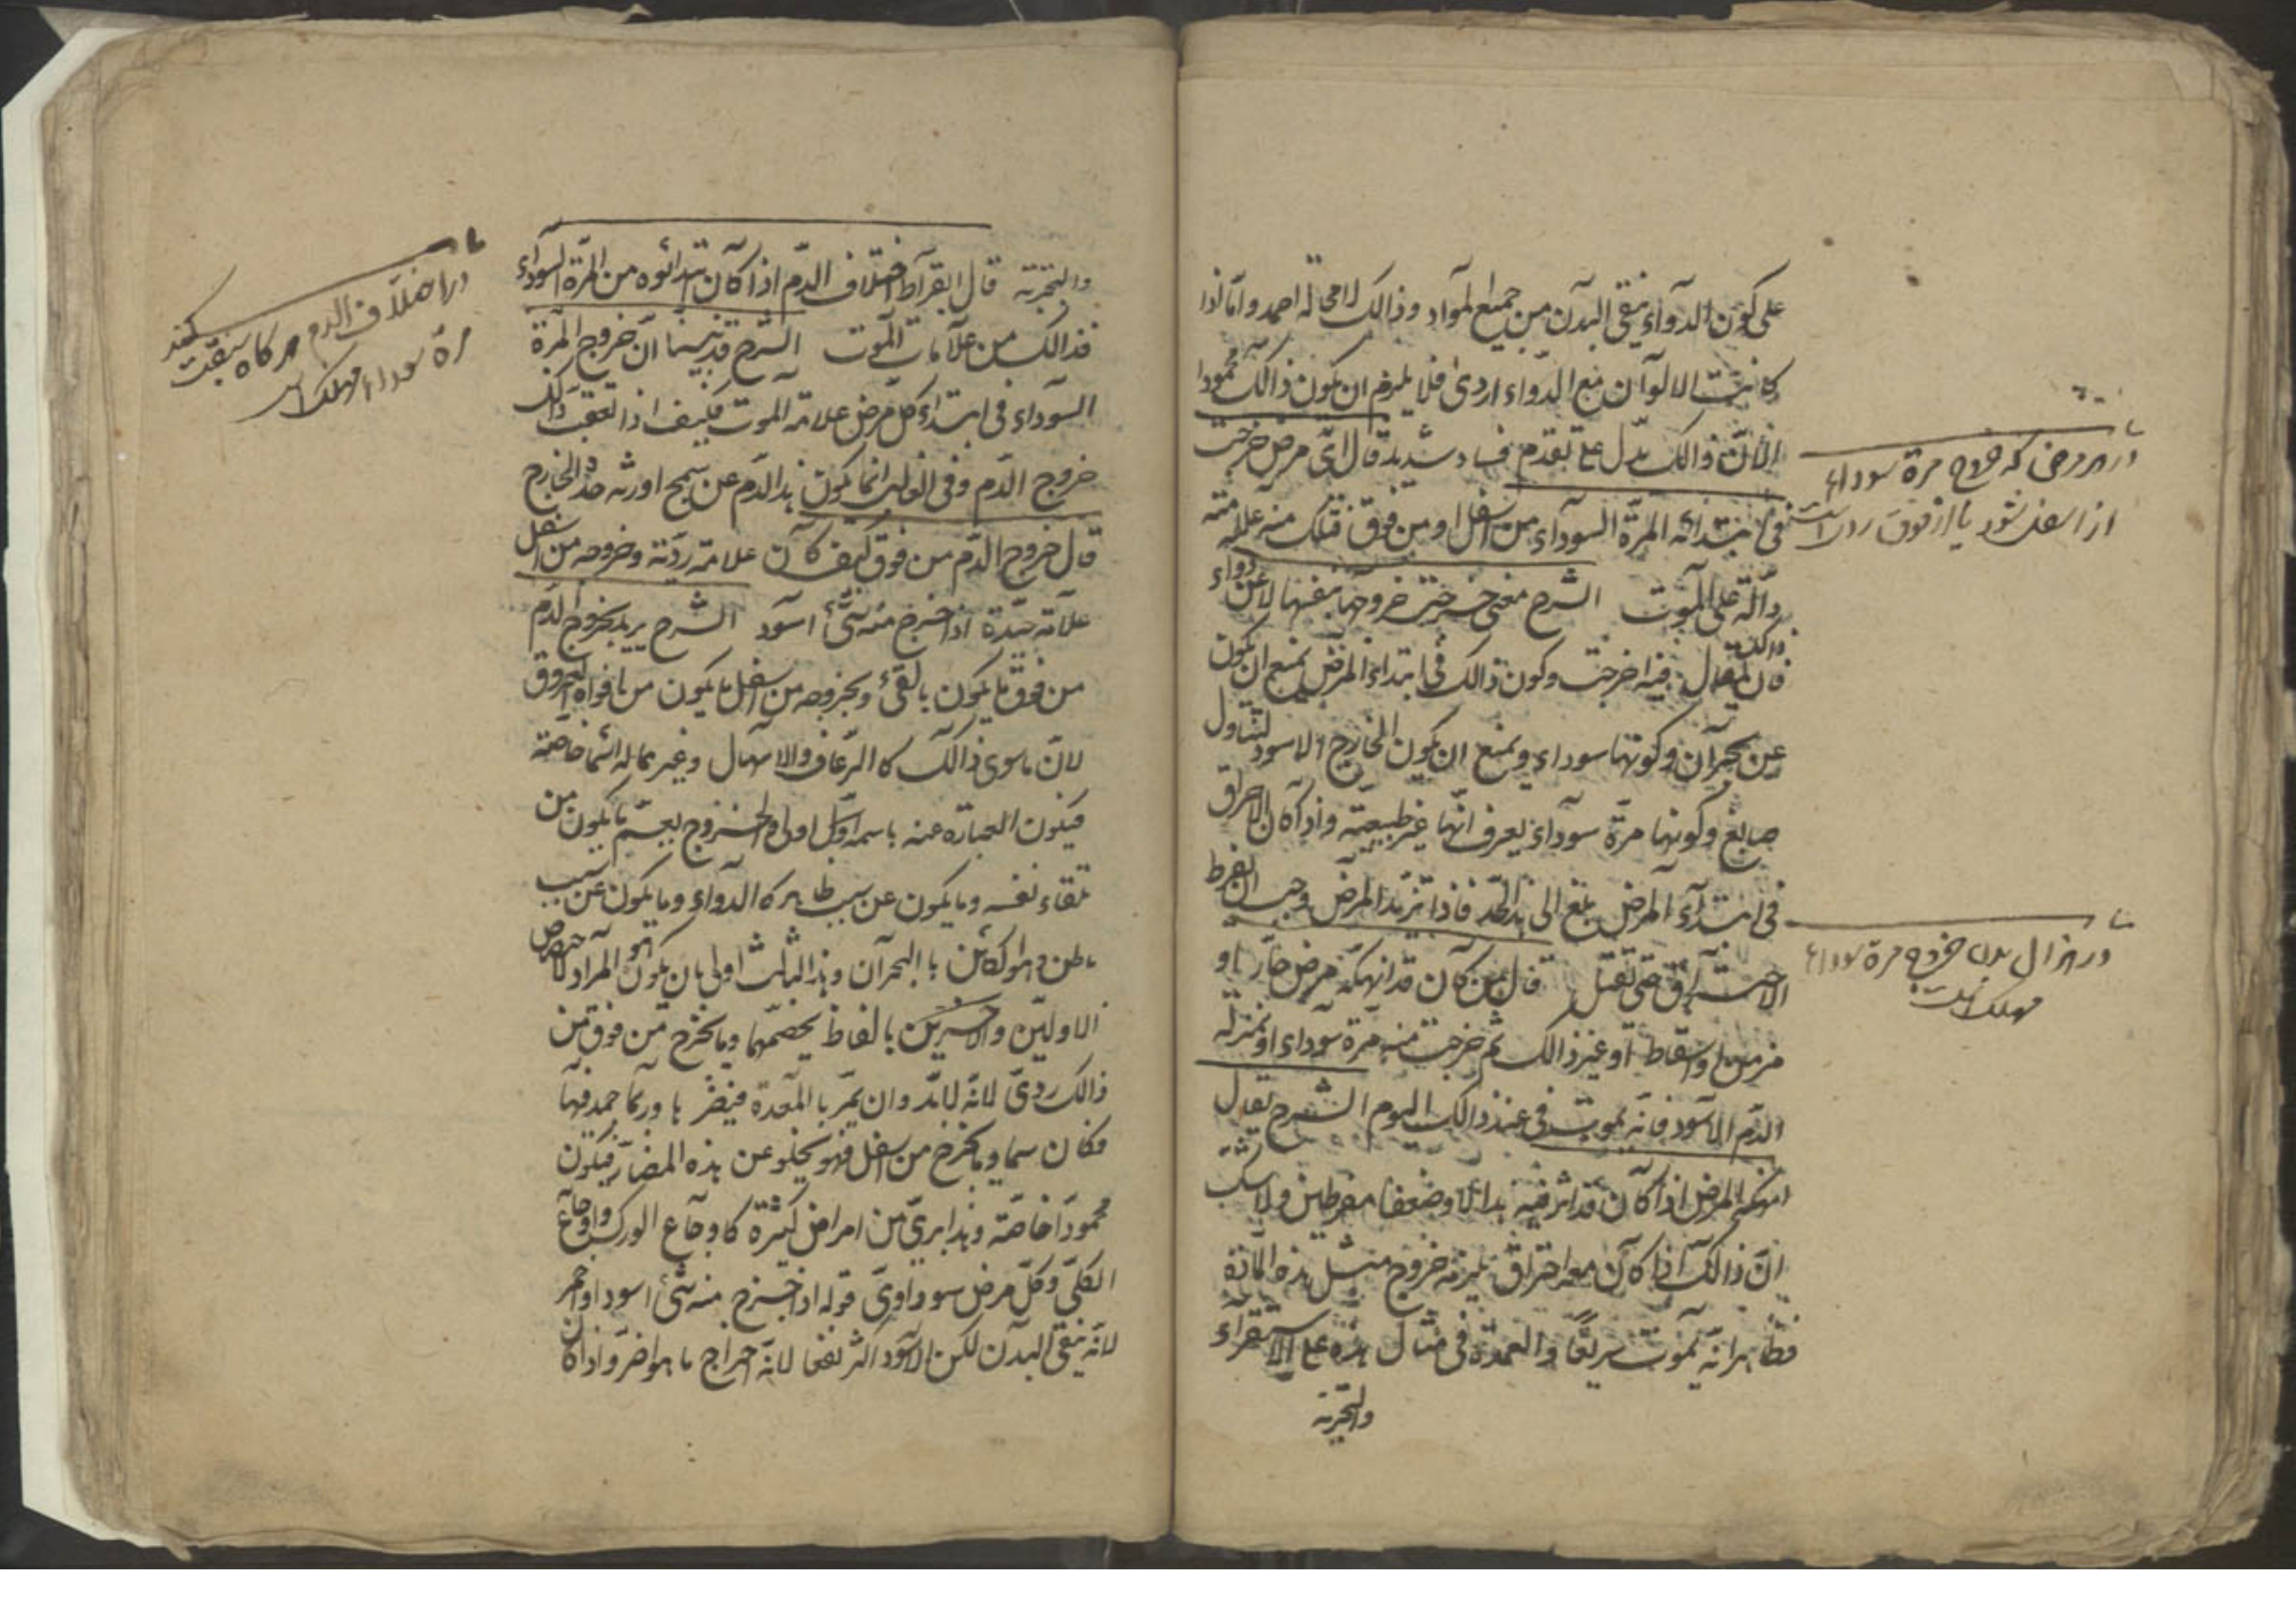 على كون الدواء ينقى البدن من جميع المواد وذالك لا محالة احمد واما اذا
كانت الالوان مع الدواء اردئ فلا يلزم ان يكون ذالك محمودا
لان ذالك يدل على تقدم فساد شديد قال اى مرض خرجت
فى ابتدائه المرة السوداء من اسفل او من فوق فتلك منه علامته
دالة على الموت الشرح معنى خرجت خروجها بنفسها لا عن دواء
فان ذالك يقال فيه اخرجت وكون ذالك فى ابتداء المرض يمنع ان يكون
عن بحران وكونها سوداء ويمنع ان يكون الخارج الاسود لتناول
صابغ وكونها مرة سوداء يعرف انها غير طبيعية واذا كان الاحراق
فى ابتداء المرض بلغ الى هذا الحد فاذا تزيد المرض وجب ان يفرط
الاحتراق حتى تقتل قال من كان قد انهكه مرض حار او
مزمن او اسقاط او غير ذالك ثم خرجت منه مرة سوداء او بمنزلة
الدم الاسود فانه يموت فى غد ذالك اليوم الشرح يقال
انهكه المرض اذا كان قد اثر فيه هزالا وضعفا مفرطين ولا شك
ان ذالك اذا كان معه احتراق يلزمه خروج مثل هذه المادة
فظاهر انه يموت سريعا والعمدة فى مثال هذه على الاستقراء
والتجربة
در هر مرضى كه خروج مرة سوداء
از اسفل شود يا از فوق ردى است
در هزال بدن خروج مرة سوداء
مهلك است
والتجربة قال ابقراط اختلاف الدم اذا كان ابتدائوه من المرة السوداء
فذالك من علامات الموت الشرح قد بينا ان خروج المرة
السوداء فى ابتداء كل مرض علامة الموت فكيف اذا تعقب ذالك
خروج الدم وفى الغالب انما يكون هذا الدم عن سحج اورثه حدة الخارج
قال خروج الدم من فوق كيف كان علامة ردية وخروجه من اسفل
علامة جيدة اذا خرج منه شئ اسود الشرح يريد بخروج الدم
من فوق ما يكون بالقئ وبخروجه من اسفل ما يكون من افواه العروق
لان ما سوى ذالك كا الرعاف والاسهال وغير مما له اسما خاصة
فيكون العبارة عنه باسمه اولى والخروج يعم ما يكون من
تلقاء نفسه وما يكون عن سبب ظاهر كا الدواء وما يكون عن سبب
باطن وهو الكائن با البحران وهذا الثالث اولى بان يكون هو المراد لاختصاص
الاولين والاخيرين بالفاظ يخصهما وما يخرج من فوق من
ذالك ردى لانه لا بد وان يمر با المعدة فيضر با وربما جمد فيها
فكان سما وما يخرج من اسفل فهو يخلو عن هذه المضار فيكون
محمودا خاصة وهذا يبرى من امراض كثيرة كا وجاع الورك واوجاع
الكلى وكل مرض سوداوى قوله اذا خرج منه شئ اسود او احمر
لانه ينقى البدن لكن الاسود اكثر نفعا لانه اخراج ما هو اضر واذا كان
در اختلاف الدم هر كاه سبقت كند
مرة سوداء مهلك است